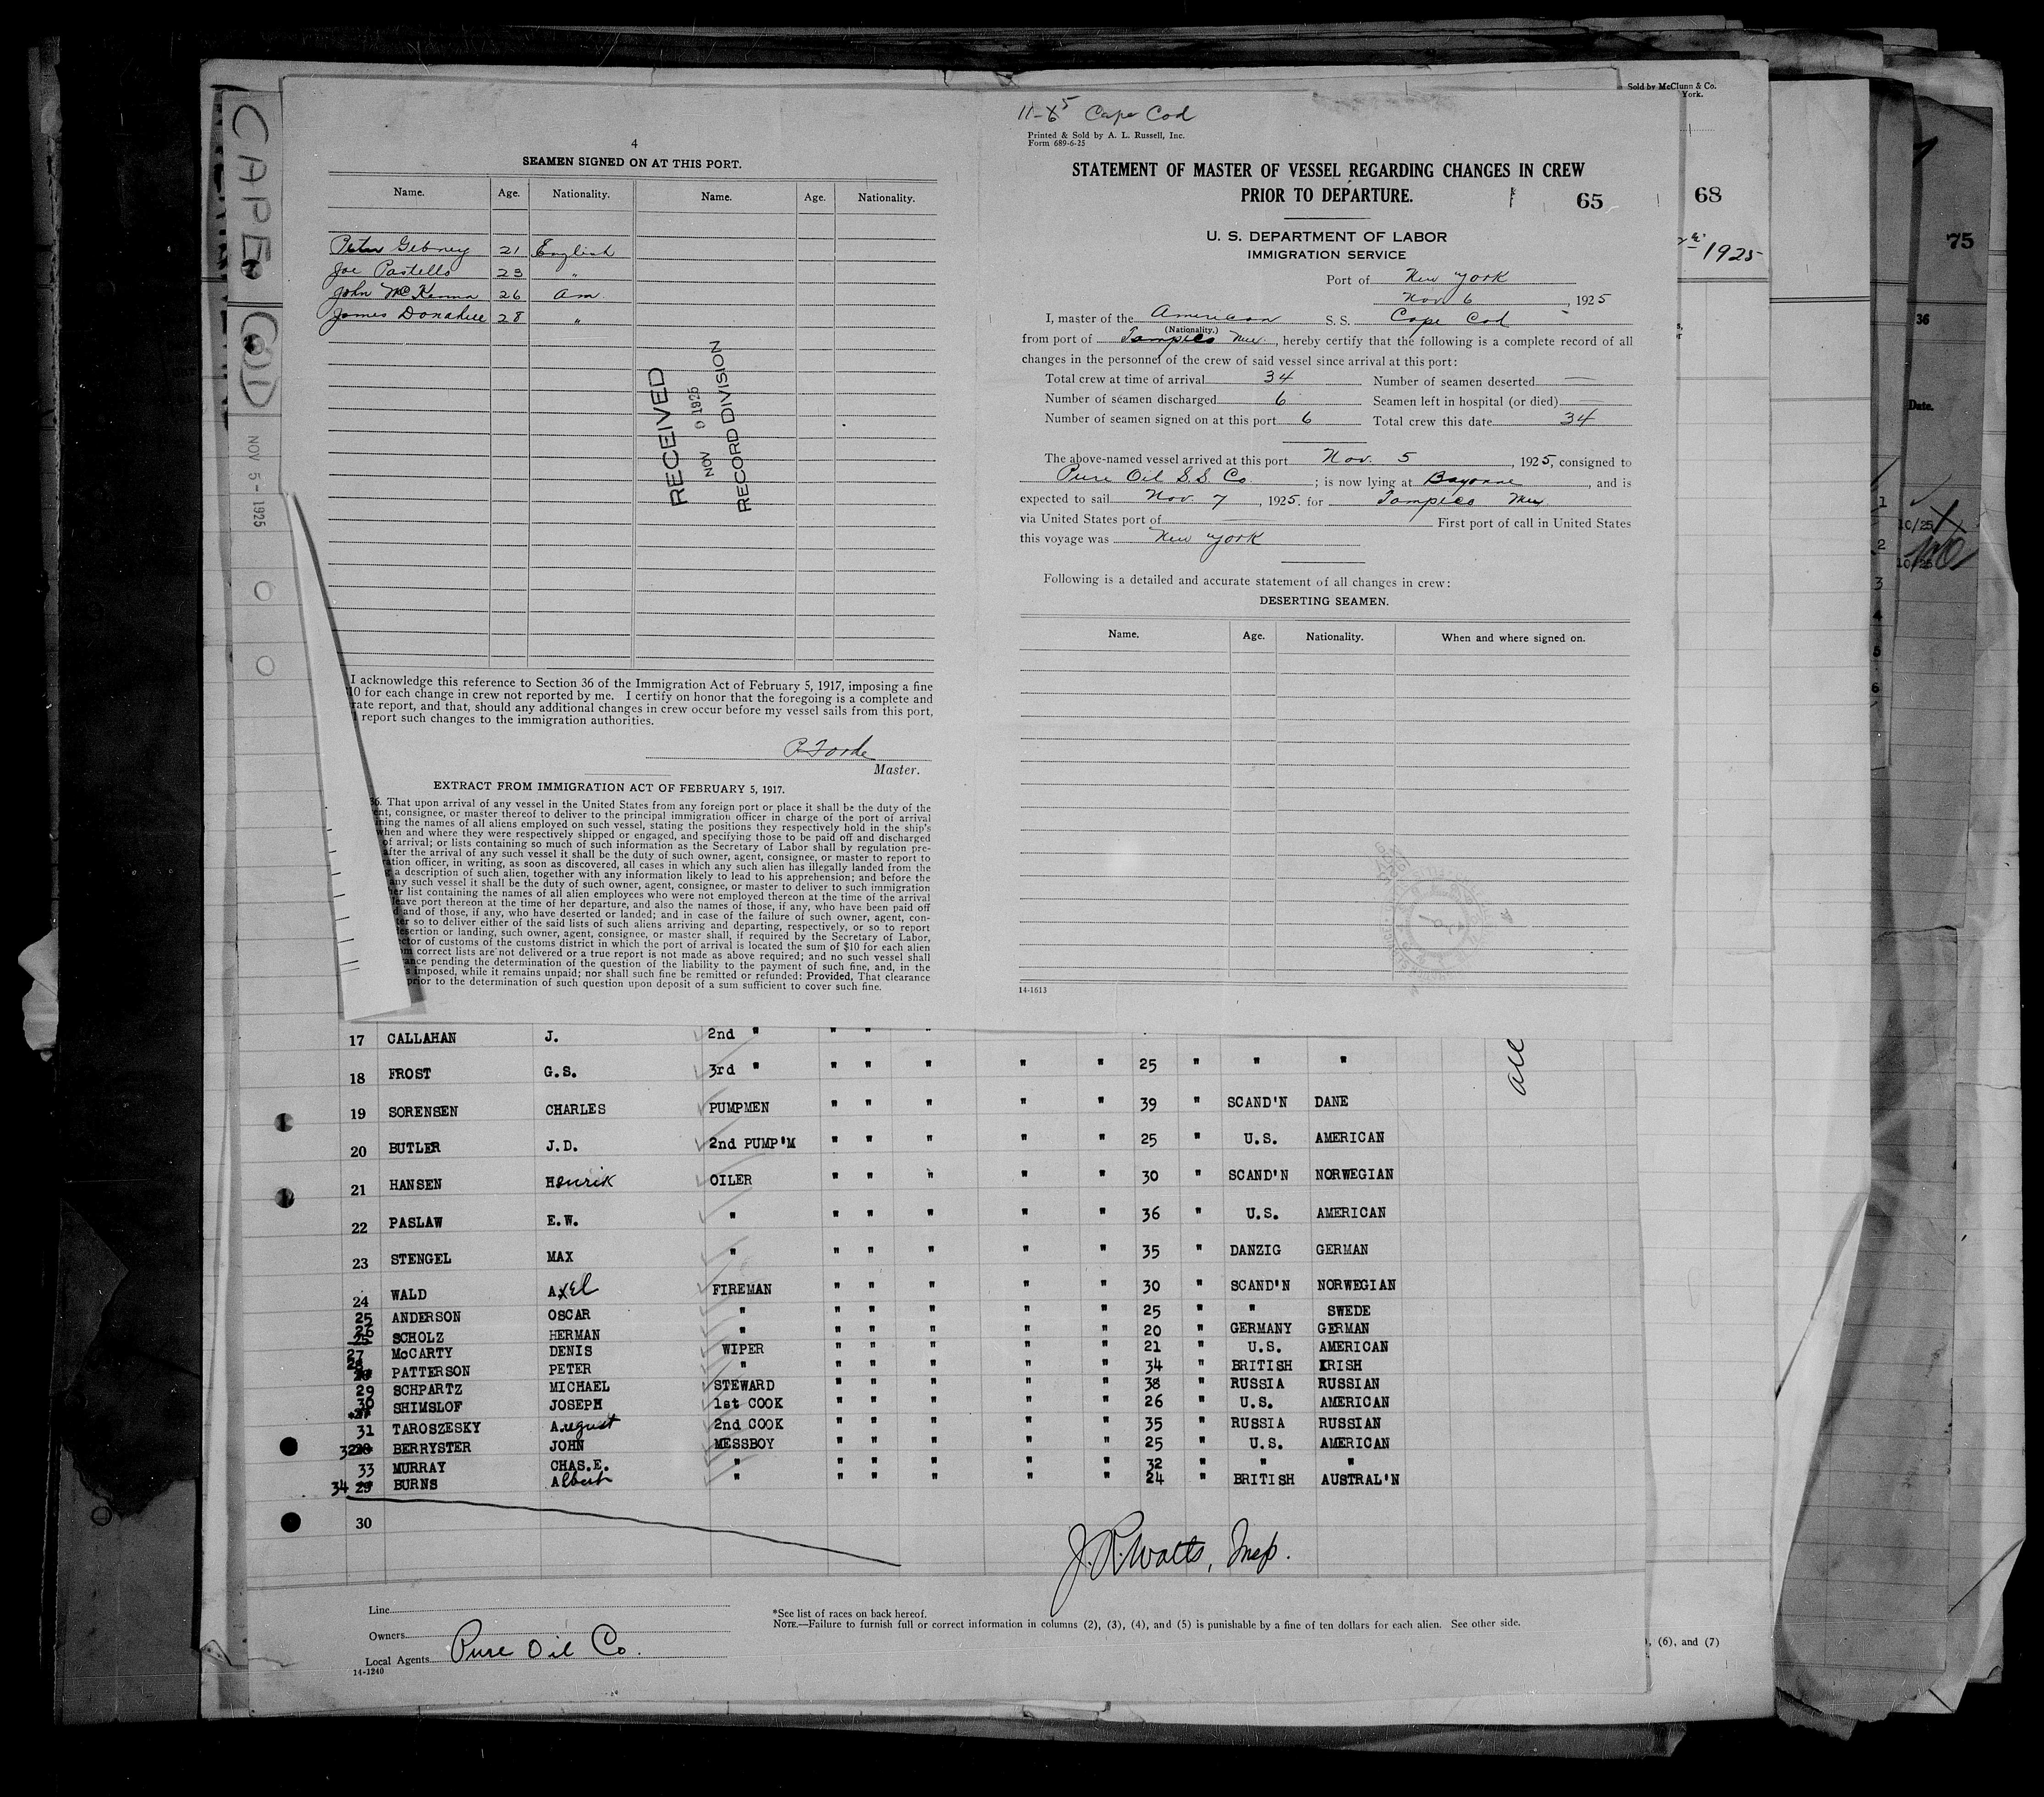 CAPE COD
NOV 5 - 1925
4
SEAMEN SIGNED ON AT THIS PORT.
Name. Age. Nationality. Name. Age. Nationality.
Peter Gebney 21 English
Joe Pastells 23 "
John McKenna 26 Am.
James Donahue 28 "
RECEIVED
NOV 1925
RECORD DIVISION
I acknowledge this reference to Section 36 of the Immigration Act of February 5, 1917, imposing a fine
10 for each change in crew not reported by me. I certify on honor that the foregoing is a complete and
rate report, and that, should any additional changes in crew occur before my vessel sails from this port,
report such changes to the immigration authorities.
Master.
EXTRACT FROM IMMIGRATION ACT OF FEBRUARY 5, 1917.
36. That upon arrival of any vessel in the United States from any foreign port or place it shall be the duty of the
ent, consignee, or master thereof to deliver to the principal immigration officer in charge of the port of arrival
ining the names of all aliens employed on such vessel, stating the positions they respectively hold in the ship's
when and where they were respectively shipped or engaged, and specifying those to be paid off and discharged
of arrival; or lists containing so much of such information as the Secretary of Labor shall by regulation pre-
after the arrival of any such vessel it shall be the duty of such owner, agent, consignee, or master to report to
ration officer, in writing, as soon as discovered, all cases in which any such alien has illegally landed from the
a description of such alien, together with any information likely to lead to his apprehension; and before the
any such vessel it shall be the duty of such owner, agent, consignee, or master to deliver to such immigration
her list containing the names of all alien employees who were not employed thereon at the time of the arrival
leave port thereon at the time of her departure, and also the names of those, if any, who have been paid off
d and of those, if any, who have deserted or landed; and in case of the failure of such owner, agent, con-
ter so to deliver either of the said lists of such aliens arriving and departing, respectively, or so to report
desertion or landing, such owner, agent, consignee, or master shall, if required by the Secretary of Labor,
ector of customs of the customs district in which the port of arrival is located the sum of $10 for each alien
om correct lists are not delivered or a true report is not made as above required; and no such vessel shall
ance pending the determination of the question of the liability to the payment of such fine, and, in the
s imposed, while it remains unpaid; nor shall such fine be remitted or refunded: Provided, That clearance
prior to the determination of such question upon deposit of a sum sufficient to cover such fine.
11-5 Cape Cod
Printed & Sold by A. L. Russell, Inc.
Form 689-6-25
STATEMENT OF MASTER OF VESSEL REGARDING CHANGES IN CREW
PRIOR TO DEPARTURE.
65
U. S. DEPARTMENT OF LABOR
IMMIGRATION SERVICE
Port of New York
Nov 6, 1925
I, master of the American S. S. Cape Cod
(Nationality.)
from port of Tampico Mex., hereby certify that the following is a complete record of all
changes in the personnel of the crew of said vessel since arrival at this port:
Total crew at time of arrival 34 Number of seamen deserted —
Number of seamen discharged 6 Seamen left in hospital (or died) —
Number of seamen signed on at this port 6 Total crew this date 34
The above-named vessel arrived at this port Nov. 5, 1925, consigned to
Pure Oil S S Co; is now lying at Bayonne, and is
expected to sail Nov. 7, 1925. for Tampico Mex.
via United States port of — First port of call in United States
this voyage was New York
Following is a detailed and accurate statement of all changes in crew:
DESERTING SEAMEN.
Name. Age. Nationality. When and where signed on.
14-1613
Sold by McClunn & Co.
York.
68
1925
75
36
Date.
1
10/25
2
10/25
3
4
5
6
17 CALLAHAN J. 2nd " " " "
18 FROST G.S. 3rd " " " " " " 25 " " "
all
19 SORENSEN CHARLES PUMPMEN " " " " " 39 " SCAND'N DANE
20 BUTLER J.D. 2nd PUMP'M " " " " " 25 " U.S. AMERICAN
21 HANSEN Henrik OILER " " " " " 30 " SCAND'N NORWEGIAN
22 PASLAW E.W. " " " " " " 36 " U.S. AMERICAN
23 STENGEL MAX " " " " " " 35 " DANZIG GERMAN
24 WALD Axel FIREMAN " " " " " 30 " SCAND'N NORWEGIAN
25 ANDERSON OSCAR " " " " " " 25 " " SWEDE
26 SCHOLZ HERMAN " " " " " " 20 " GERMANY GERMAN
27 McCARTY DENIS WIPER " " " " " 21 " U.S. AMERICAN
28 PATTERSON PETER " " " " " " 34 " BRITISH IRISH
29 SCHPARTZ MICHAEL STEWARD " " " " " 38 " RUSSIA RUSSIAN
30 SHIMSLOF JOSEPH 1st COOK " " " " " 26 " U.S. AMERICAN
31 TAROSZESKY August 2nd COOK " " " " " 35 " RUSSIA RUSSIAN
32 BERRYSTER JOHN MESSBOY " " " " " 25 " U.S. AMERICAN
33 MURRAY CHAS.E. " " " " " " 32 " " "
34 29 BURNS Albert " " " " " " 24 " BRITISH AUSTRAL'N
30
J. R. Watts, Insp.
Line
Owners
Local Agents Pure Oil Co.
14-1240
*See list of races on back hereof.
NOTE.—Failure to furnish full or correct information in columns (2), (3), (4), and (5) is punishable by a fine of ten dollars for each alien. See other side.
, (6), and (7)